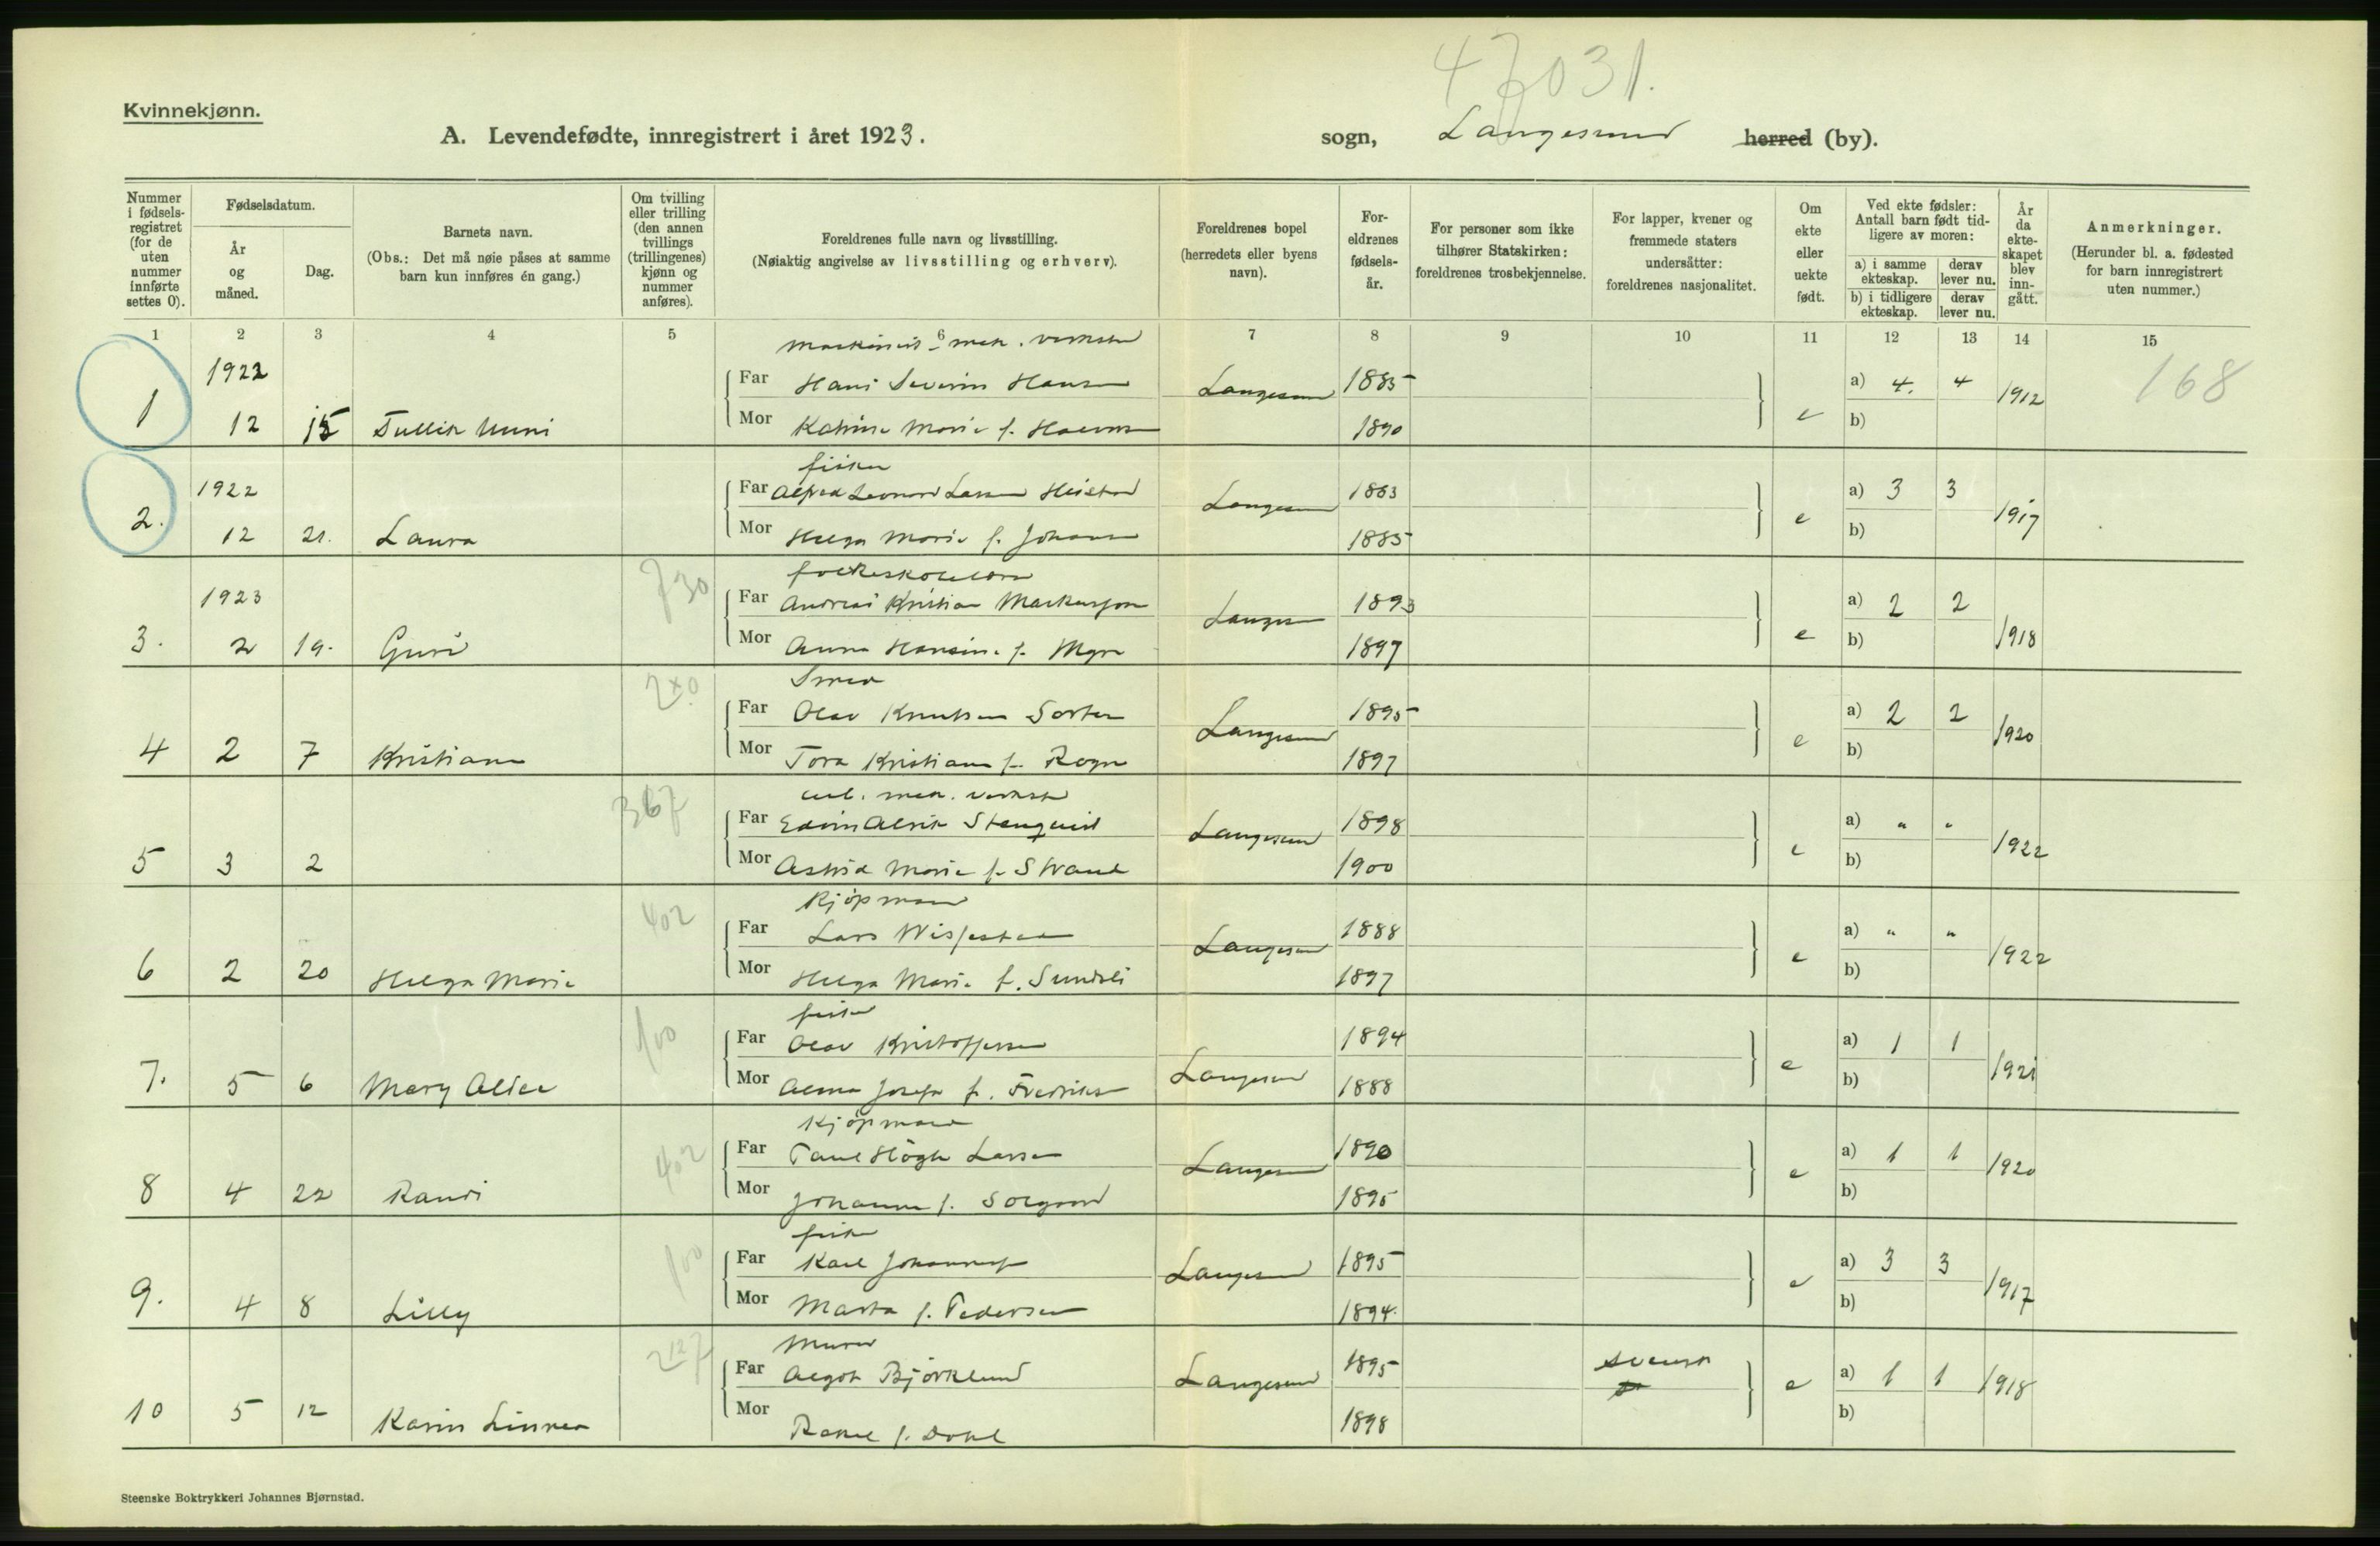 47031.
Kvinnekjønn.
A. Levendefødte, innregistrert i året 1923. sogn, Langesund herred (by).
Nummer i fødsels-registret (for de uten nummer innførte settes 0).
Fødselsdatum.
År og måned.
Dag.
Barnets navn.
(Obs.: Det må nøie påses at samme barn kun innføres én gang.)
Om tvilling eller trilling (den annen tvillings (trillingenes) kjønn og nummer anføres).
Foreldrenes fulle navn og livsstilling.
(Nøiaktig angivelse av livsstilling og erhverv).
Foreldrenes bopel (herredets eller byens navn).
For-eldrenes fødsels-år.
For personer som ikke tilhører Statskirken: foreldrenes trosbekjennelse.
For lapper, kvener og fremmede staters undersåtter: foreldrenes nasjonalitet.
Om ekte eller uekte født.
Ved ekte fødsler: Antall barn født tid-ligere av moren:
a) i samme ekteskap. derav lever nu.
b) i tidligere ekteskap. derav lever nu.
År da ekte-skapet blev inn-gått.
Anmerkninger.
(Herunder bl. a. fødested for barn innregistrert uten nummer.)
1 2 3 4 5 6 7 8 9 10 11 12 13 14 15
1922 Far Hans Severin Hansen Langesund 1885 a) 4. 4 1912 168
1 12 15 Mor Marie f. 1890 e b)
fisker
1922 Far Alfred Leonard Larsen Langesund 1883 a) 3 3 1917
2. 12 21. Laura Mor Helga Marie f. Johansen 1885 e b)
730 folkeskolelærer
1923 Far Andreas Kristian Markussen Langesund 1893 a) 2 2 1918
3. 2 19. Guri Mor Anna Hansine f. Myre 1897 e b)
240 Smed
Far Olav Knutsen Langesund 1895 a) 2 2 1920
4 2 7 Kristiane Mor Tora Kristiane f. 1897 e b)
367 arb. mek. verksted
Far Edvin Alrik Stenquist Langesund 1898 a) " " 1922
5 3 2 Mor Astrid Marie f. Strand 1900 e b)
402 Kjöpmann
Far Lars Langesund 1888 a) " " 1922
6 2 20 Helga Marie Mor Helga Marie f. Sundsli 1897 e b)
100 fisker
Far Olav Kristoffersen Langesund 1894 a) 1 1 1921
7. 5 6 Mary Alice Mor Alma Josefa f. Fredriksen 1888 e b)
402 Kjöpmann
Far Paul Högh Larsen Langesund 1890 a) 1 1 1920
8 4 22 Randi Mor Johanne f. Solgaard 1895 e b)
100 fisker
Far Karl Johannessen Langesund 1895 a) 3 3 1917
9. 4 8 Lilly Mor Marta f. Pedersen 1894. e b)
217 Murer
Far Algot Björklund Langesund 1895 svensk a) 1 1 1918
10 5 12 Karin Linnea Mor Rakel f. Dahl 1898 e b)
Steenske Boktrykkeri Johannes Bjørnstad.